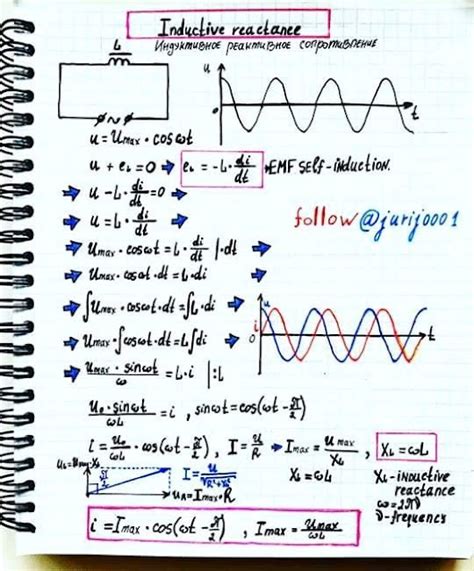 Inductive reactance
Индуктивное реактивное сопротивление
L
u
t
0
u = Umax • cos ωt
u + eL = 0 ⇒ eL = -L • di/dt EMF self-induction.
u - L • di/dt = 0
u = L • di/dt
follow @jurij0001
Umax • cos ωt = L • di/dt | • dt
Umax • cos ωt • dt = L • di
∫Umax • cos ωt • dt = ∫L • di
u
i
0
t
Umax • ∫cos ωt • dt = L∫di
Umax • sin ωt / ω = L • i | : L
U0 • sin ωt / ωL = i , sin ωt = cos(ωt - π/2)
i = U0/ωL • cos(ωt - π/2) , I = U/R ⇒ Imax = Umax/XL , XL = ωL
π/2
I = U/√R²+XL²
XL = ωL
XL - inductive
reactance
UR = Imax • R
ω = 2πν
ν - frequency
i = Imax • cos(ωt - π/2) , Imax = Umax/ωL